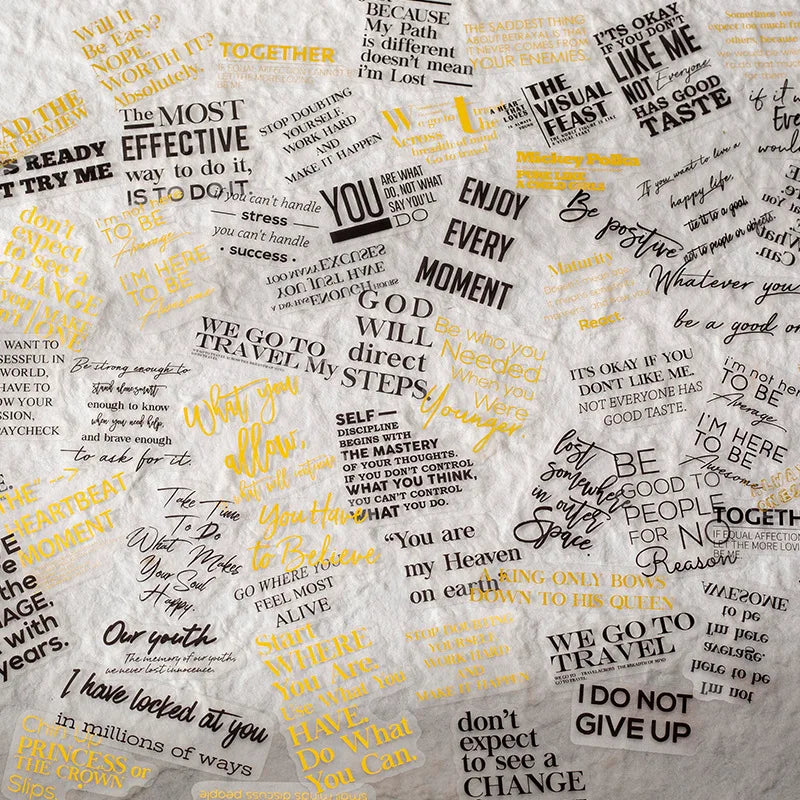 Will It
Be Easy?
NOPE.
WORTH IT?
Absolutely.
TOGETHER
IF EQUAL AFFECTION CANNOT BE
LET THE MORE LOVING
BECAUSE
My Path
is different
doesn't mean
i'm Lost
THE SADDEST THING
ABOUT BETRAYAL IS THAT
IT NEVER COMES FROM
YOUR ENEMIES.
IT'S OKAY
IF YOU DON'T
LIKE ME
NOT Everyone
HAS GOOD
TASTE
Sometimes we
expect
others, because
The MOST
EFFECTIVE
way to do it,
IS TO DO IT.
STOP DOUBTING
YOURSELF,
WORK HARD
AND
MAKE IT HAPPEN
A HEART
THAT
LOVES
IS ALWAYS
THE
VISUAL
FEAST
READY
T TRY ME
if you can't handle
stress
you can't handle
success
YOU ARE WHAT
DO, NOT WHAT
SAY YOU'LL
DO
ENJOY
EVERY
MOMENT
If you want to live a
happy life,
tie it to a goal,
not to people or objects.
Be positive
don't
expect
to see a
CHANGE
i'm not here
TO BE
Average
I'M HERE
TO BE
Awesome
TOO MANY EXCUSES
YOU JUST HAVE
ENOUGH HOURS
Maturity
React
Whatever you
be a good
WE GO TO
TRAVEL My
GOD
WILL
direct
STEPS.
Be who you
Needed
When you
Were
Younger.
WANT TO
WORLD,
HAVE TO
PAYCHECK
Be strong enough to
stand alone, smart
enough to know
when you need help,
and brave enough
to ask for it.
What you
allow,
what will continue
IT'S OKAY IF YOU
DON'T LIKE ME.
NOT EVERYONE HAS
GOOD TASTE.
i'm not here
TO BE
Average
I'M HERE
TO BE
Awesome
SELF—
DISCIPLINE
BEGINS WITH
THE MASTERY
OF YOUR THOUGHTS.
IF YOU DON'T CONTROL
WHAT YOU THINK,
YOU CAN'T CONTROL
WHAT YOU DO.
THE
HEARTBEAT
MOMENT
Take Time
To Do
What Makes
Your Soul
Happy.
You Have
to Believe.
lost
somewhere
in outer
Space.
BE
GOOD TO
PEOPLE
FOR NO
Reason
TOGETH
IF EQUAL AFFECTION
LET THE MORE LOVING
BE ME
GO WHERE YOU
FEEL MOST
ALIVE
"You are
my Heaven
on earth"
A KING ONLY BOWS
DOWN TO HIS QUEEN
the
with
years.
Our youth
The memory of our youth,
we never lost innocence.
Start
WHERE
You Are.
Use What You
HAVE.
Do What
You Can.
STOP DOUBTING
YOURSELF
WORK HARD
AND
MAKE IT HAPPEN
WE GO TO
TRAVEL
AWESOME
to be
I'm here
average.
here to be
I'm not
I have locked at you
in millions of ways
I DO NOT
GIVE UP
Chin up
PRINCESS or
THE CROWN
Slips.
don't
expect
to see a
CHANGE